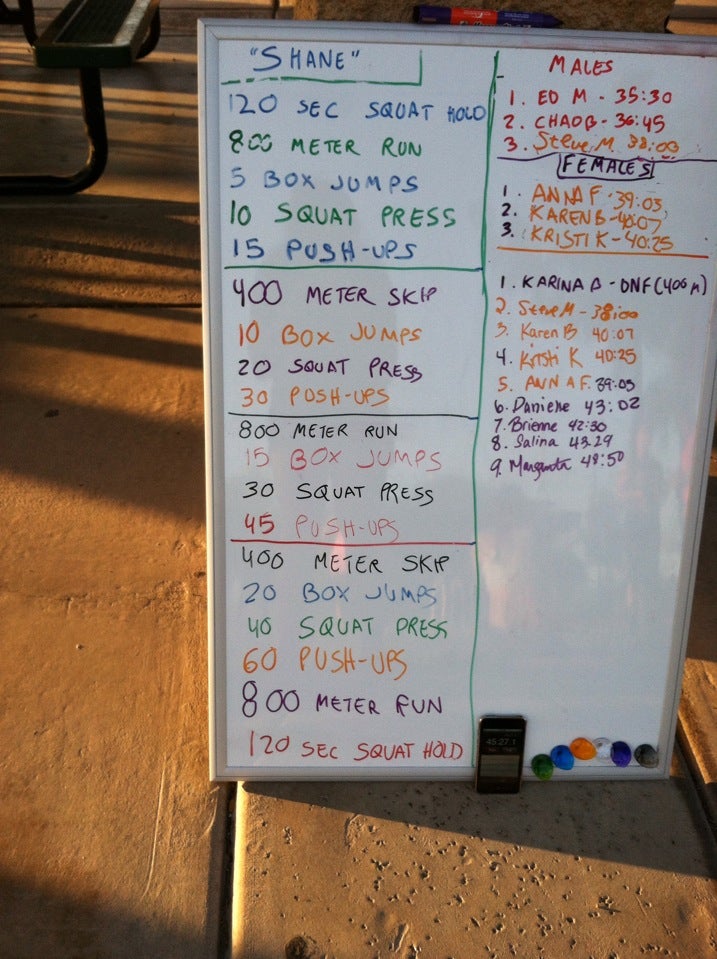 "SHANE"
120 SEC SQUAT HOLD
800 METER RUN
5 BOX JUMPS
10 SQUAT PRESS
15 PUSH-UPS
400 METER SKIP
10 BOX JUMPS
20 SQUAT PRESS
30 PUSH-UPS
800 METER RUN
15 BOX JUMPS
30 SQUAT PRESS
45 PUSH-UPS
400 METER SKIP
20 BOX JUMPS
40 SQUAT PRESS
60 PUSH-UPS
800 METER RUN
120 SEC SQUAT HOLD
MALES
1. ED M - 35:30
2. CHAD B - 36:45
3. Steve M 38:00
FEMALES
1. ANNA F - 39:03
2. KAREN B - 40:07
3. KRISTI K - 40:25
1. KARINA B - DNF (400 m)
2. Steve M - 38:00
3. Karen B 40:07
4. Kristi K 40:25
5. ANNA F. 39:03
6. Daniene 43:02
7. Brienne 42:30
8. Salina 43:29
9. 48:50
45:27.1